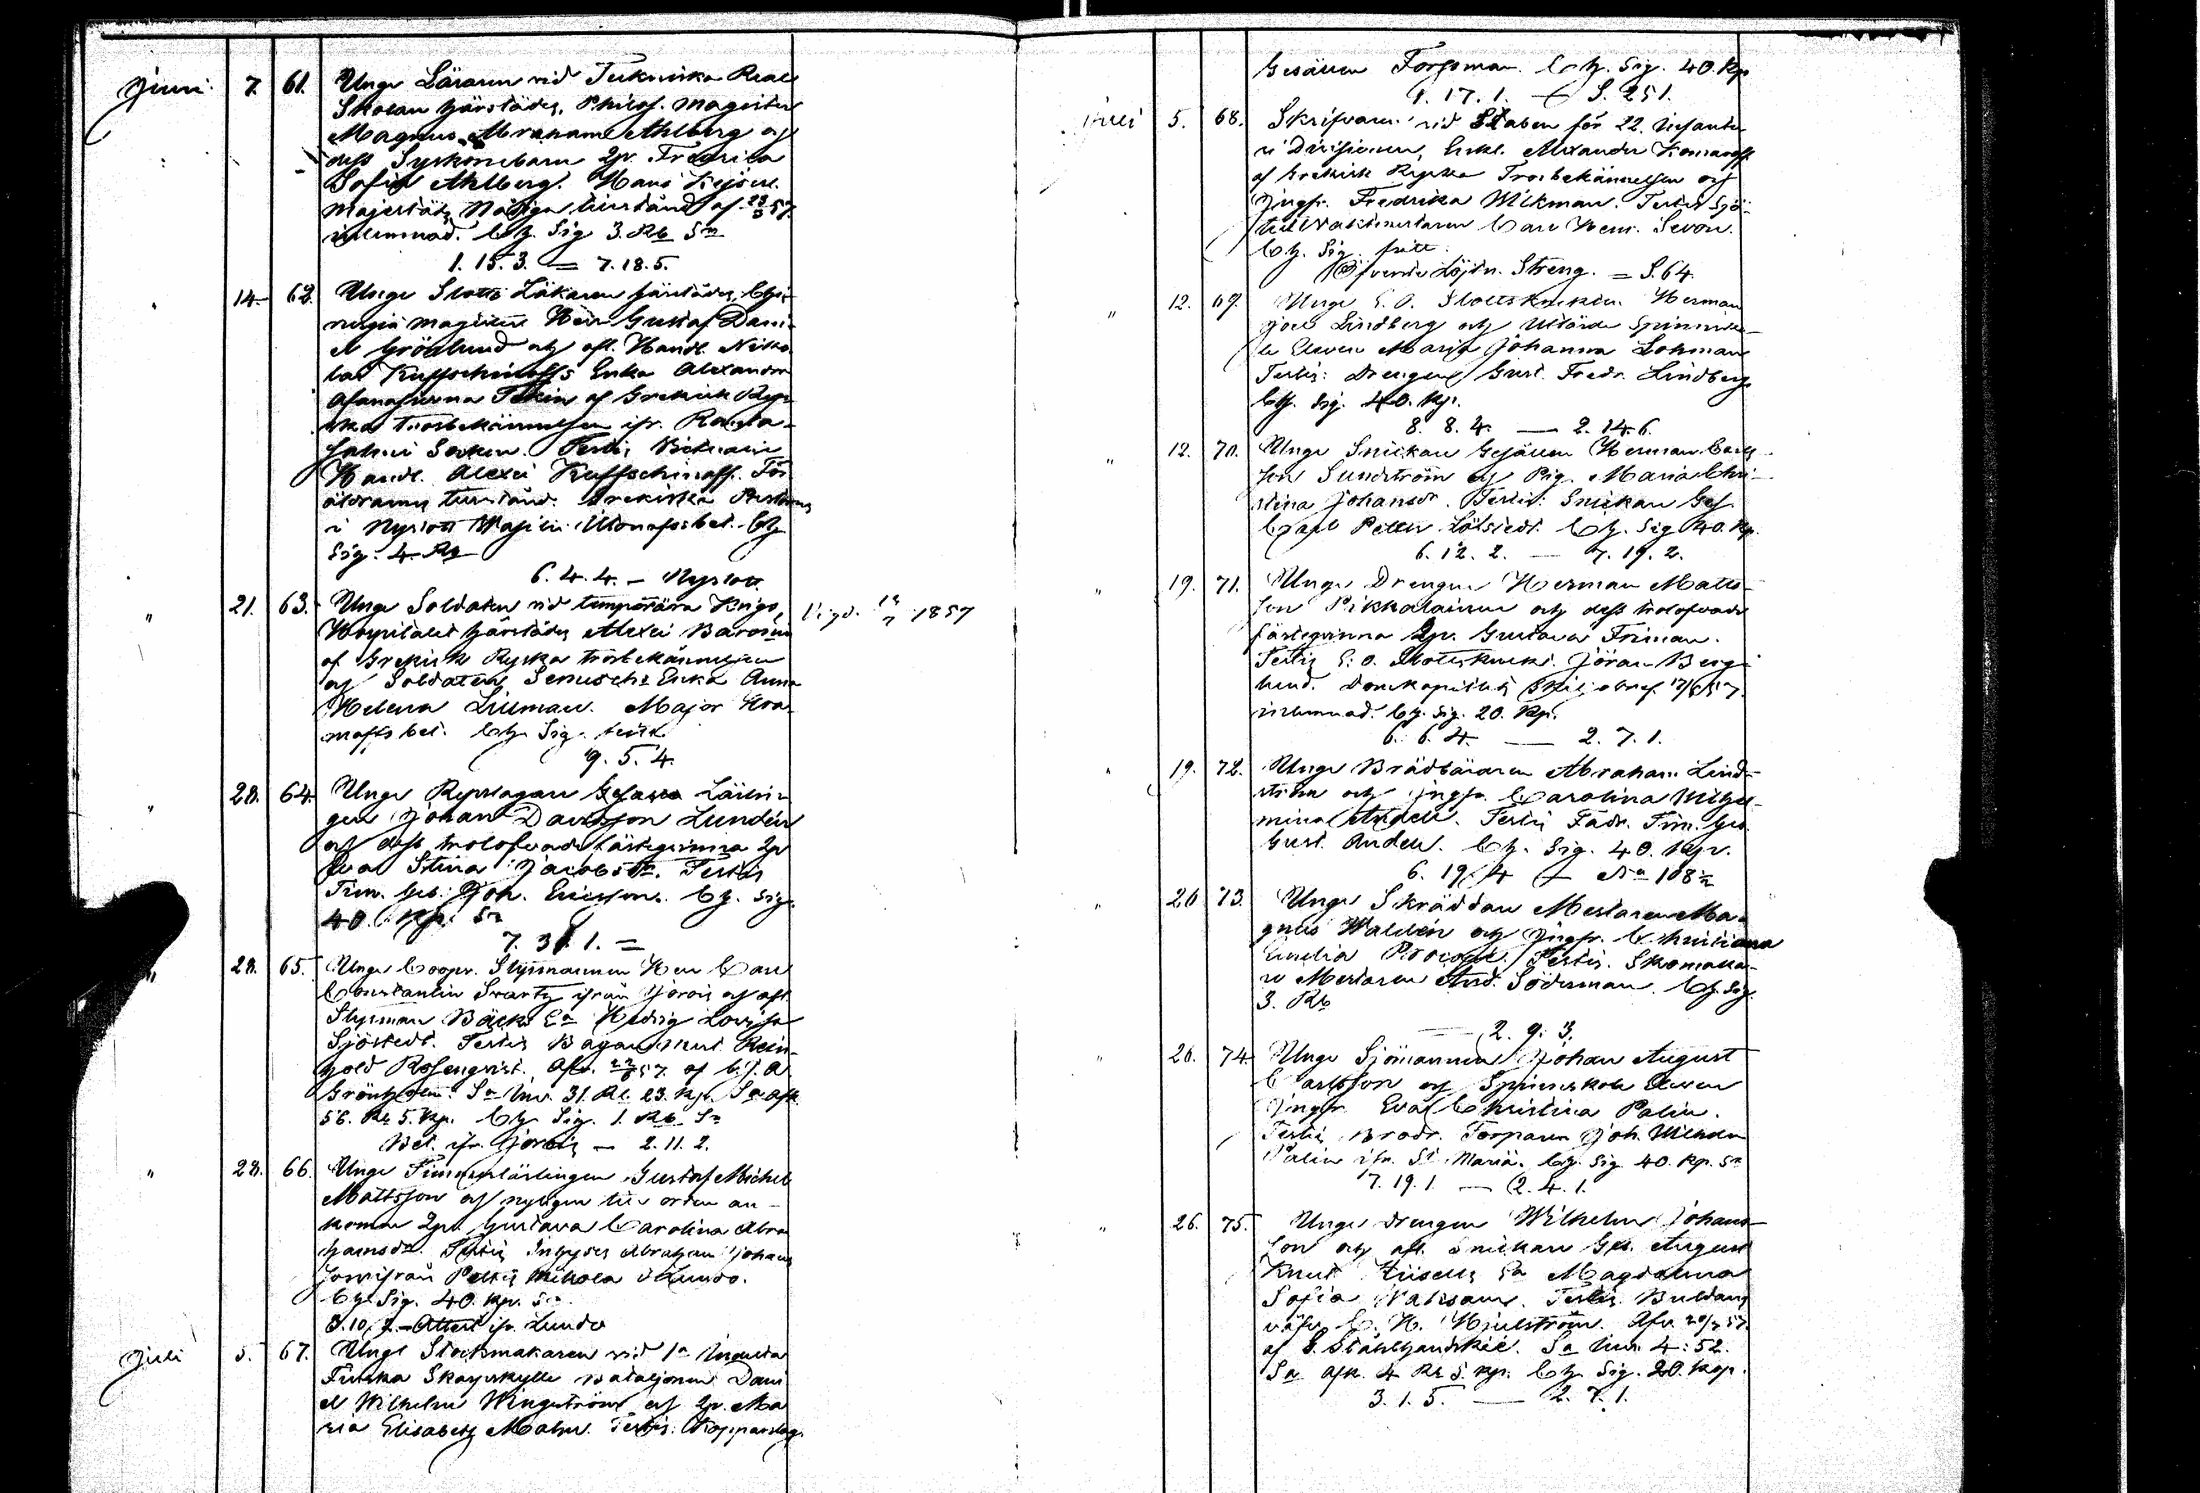 Juni 7. 61. Unge Läraren vid Tekniska Real
Skolan härstädes, Philos. Magister
Magnus Abraham Ahlberg och
dess Syskonebarn Jgfr. Fredrica
Sofia Ahlberg. Hans Kejserl.
Majestäts Nådiga tillstånd af 57
inlemnad. Ch. Sig. 3. Rb Sr
1. 15. 3. = 7. 18. 5.
" 14. 62. Unge Slotts Läkaren härstädes, Chi-
rurgiæ Magistern Herr Gustaf Dani-
el Grönlund och afl. Handl. Niko-
lai Kuffschinoffs Enka Alexandra
af Grekisk Rys-
ska trosbekännelsen ifr.
Socken. Testis
Handl. Alexei Kuffschinoff. För-
äldrarnes tillstånd. Grekiska
i Nyslott bet. Ch.
Sig. 4. Rb
6. 4. 4. – Nyslott
" 21. 63. Unge Soldaten vid temporära Krigs
Hospitalet härstädes Alexei
af Grekisk Ryska trosbekännelsen
och Soldaten Enka Anna
Helena Liliman. Major
bet. Ch. Sig.
9. 5. 4.
1857
" 28. 64. Unge Repslagare Gesälls Lärlin-
gen Johan Davidsson Lundén
och dess trolofvade fästeqvinna Jgfr
Eva Stina Jacobsdr. Testis
Tim. Ges. Joh. Ericsson. Ch. Sig.
40. Kp. Sr
7. 31. 1. =
" 28. 65. Unge Coopv. Styrmannen Herr Carl
Constantin Svartz ifrån Jorois och afl.
Styrman Bäcks Ea Hedvig Lovisa
Sjöstedt. Testis Bagare Mest. Rein-
hold Rosenqvist. Afv. 57. af C. J. A.
Grönholm. Sa Inv. 31. Rb. 23. Kp. Sa afk.
56. Rb 5. Kp. Ch. Sig. 1. Rb Sr
Bet. ifr. Jorois — 2. 11. 2.
" 28. 66. Unge Timmerlärlingen Gustaf Michel
Mattsson och nyligen till orten an-
komna Jgfr Gustava Carolina Abra-
hamsdr. Testis Inhyses Abraham Johans-
son ifrån Mikola i Lundo.
Ch. Sig. 40. Kp. Sr
3. 10. 2. – Attest ifr. Lundo
Juli 5. 67. Unge Stockmakaren vid 1a Indelta
Finska Skarpskytte Bataljonen Dani-
el Wilhelm Wingström och Jgfr. Ma-
ria Elisabeth Malm. Testis: Kopparslag.
Gesällen Forssman. Ch. Sig. 40. Kp
1. 17. 1. — S. 251.
Juli 5. 68. Skrifvaren vid Staben för 22. Infante-
ri Divisionen, Alexander Komaroff
af Grekisk Ryska Trosbekännelsen och
Jungfr. Fredrika Wikman. Testis Sjö-
tullVaktmästaren Carl Henr. Sevon.
Ch. Sig. fritt.
Öfverste Löjtn. Streng. = S. 64.
" 12. 69. Unge E. O. Slottsknekten Herman
Joel Lindberg och Utlärda Spinnsko-
le Eleven Maria Johanna Lohman
Testis: Drengen Gust. Fredr. Lindberg
Ch. Sig. 40. Kp.
8. 8. 4. — 2. 14. 6.
" 12. 70. Unge Snickare Gesällen Herman Carls-
son Sundström och Pig. Maria Chri-
stina Johansdr. Testis: Snickare Ges.
Carl Petter Löfstedt. Ch. Sig 40. Kp.
6. 12. 2. — 7. 19. 2.
" 19. 71. Unge Drengen Herman Matts-
son Pikkalainen och dess trolofvade
fästeqvinna Jgfr. Gustava Friman.
Testis E: O. Slottsknekt. Jöran Berg-
lund. Domkapitlets skiljobref 57.
inlemnad. Ch. Sig. 20. Kp.
6. 6. 4. — 2. 7. 1.
" 19. 72. Unge Brädbäraren Abraham Lind-
ström och Jungfr. Carolina Wilhel-
mina Andell. Testis Fadr. Tim. Ges.
Gust. Andell. Ch. Sig. 40. Kp.
6. 19. 4 — No 108½
" 26 73. Unge Skräddare Mästaren Ma-
gnus Waldén och Jungfr. Christiana
Emelia Testis. Skomaka-
re Mästaren And. Söderman. Ch. Sig.
3. Rb
— 2. 9. 3.
" 26. 74. Unge Sjömannen Johan August
Carlsson och Spinnskole Eleven
Jungfr. Eva Christina Palin.
Testis Brodr. Torparen Joh. Wilhelm
Palin ifr. St. Mariæ. Ch. Sig. 40. Kp. Sr
7. 19. 1. — 2. 4. 1.
" 26. 75. Unge drengen Wilhelm Johans-
son och afl. Snickare Ges. August
Knut Ea Magdalena
Sofia Testis. Buldans
väfv. C. H. Hjulström. Afv. 20/7 57.
af G. Stålhandske. Sa Inv. 4: 52.
Sa afk. 4 Rb 5. Kp. Ch. Sig. 20. Kop.
3. 1. 5. — 2. 7. 1.